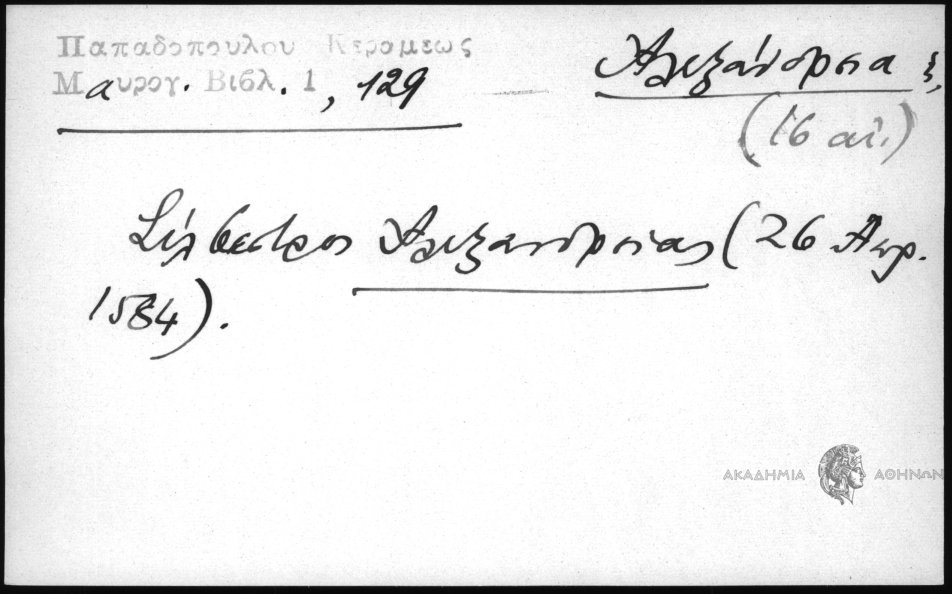 Παπαδοπουλου Κεραμεως
Μαυρογ. Βιβλ. 1, 129
Αλεξάνδρεια
(16 αἰ.)
Σίλβεστρος Αλεξανδρείας (26 Απρ.
1584).
ΑΚΑΔΗΜΙΑ ΑΘΗΝΩΝ